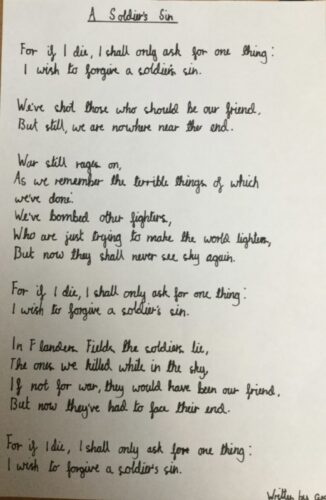 A Soldier's Sin
For if I die, I shall only ask for one thing:
I wish to forgive a soldier's sin.
We've shot those who should be our friend,
But still, we are nowhere near the end.
War still rages on,
As we remember the terrible things of which
we've done.
We've bombed other fighters,
Who are just trying to make the world lighter,
But now they shall never see sky again.
For if I die, I shall only ask for one thing:
I wish to forgive a soldier's sin.
In Flanders Fields the soldiers lie,
The ones we killed while in the sky,
If not for war, they would have been our friend,
But now they've had to face their end.
For if I die, I shall only ask fore one thing:
I wish to forgive a soldier's sin.
Written by